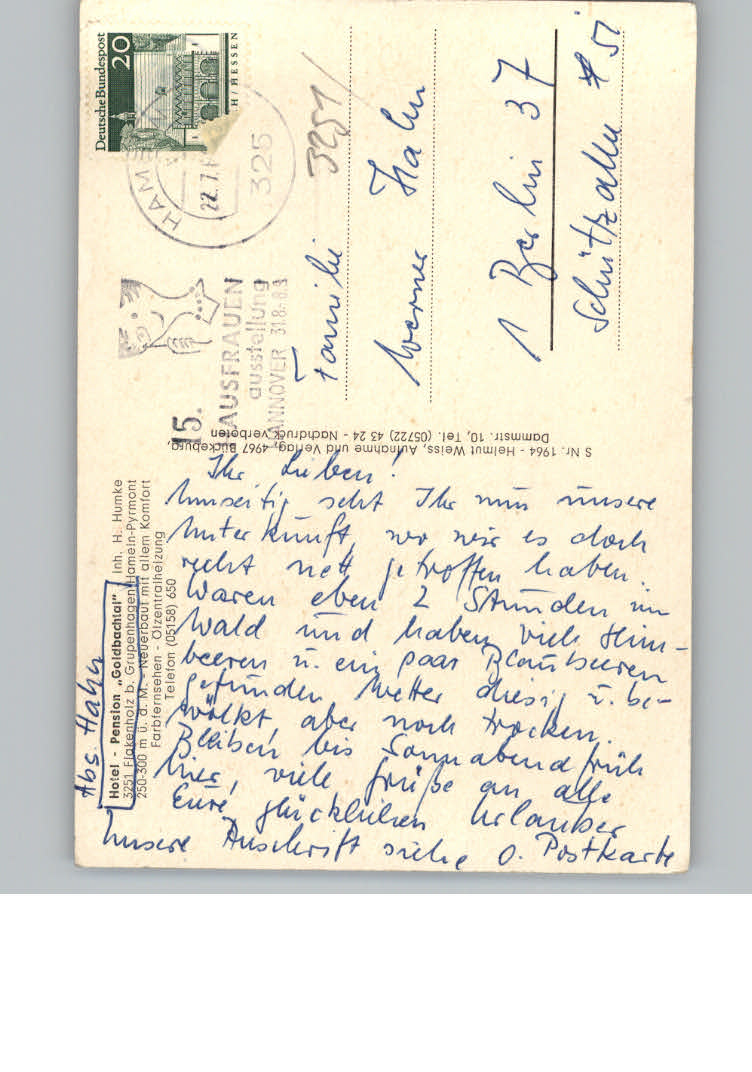 Abs. Hahn
Hotel - Pension „Goldbachtal" Inh. H. Humke
3251 Flakenholz b. Grupenhagen/Hameln-Pyrmont
250-300 m ü. d. M. - Neuerbaut mit allem Komfort
Farbfernsehen - Ölzentralheizung
Telefon (05158) 650
Ihr Lieben!
Umseitig seht Ihr nun unsere
Unterkunft, wo wir es doch
recht nett getroffen haben.
Waren eben 2 Stunden im
Wald und haben viele Him-
beeren u. ein paar Blaubeeren
gefunden Wetter diesig u. be-
wölkt, aber noch trocken.
Bleiben bis Sonnabend früh
hier, viele Grüße an alle
Eure glücklichen Urlauber
Unsere Anschrift siehe o. Postkarte
S Nr. 1964 - Helmut Weiss, Aufnahme und Verlag, 4967 Bückeburg,
Dammstr. 10, Tel. (05722) 43 24 - Nachdruck verboten
15.
HAUSFRAUEN
ausstellung
HANNOVER 31.8.-8.9.
HAME
22.7.
325
Deutsche Bundespost
20
H/HESSEN
3251/
Familie
Werner Hahn
1 Berlin 37
Schützallee 51